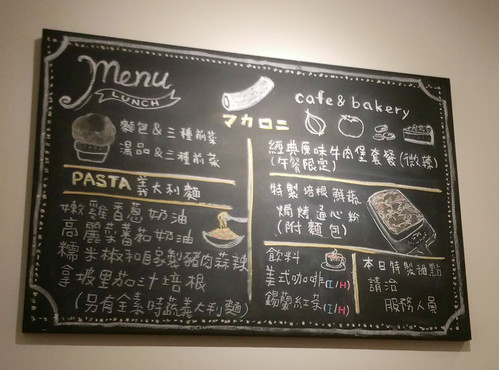 Menu
LUNCH
麵包&三種前菜
湯品&三種前菜
PASTA 義大利麵
嫩雞香蔥奶油
高麗菜蕃茄奶油
糯米椒和自製豬肉蒜辣
拿坡里茄汁培根
(另有全素時蔬義大利麵)
cafe & bakery
マカロニ
經典原味牛肉堡套餐(微辣)
(午餐限定)
特製培根鮮蔬
焗烤通心粉
(附麵包)
飲料
美式咖啡(I/H)
錫蘭紅茶(I/H)
本日特製甜點
請洽
服務人員